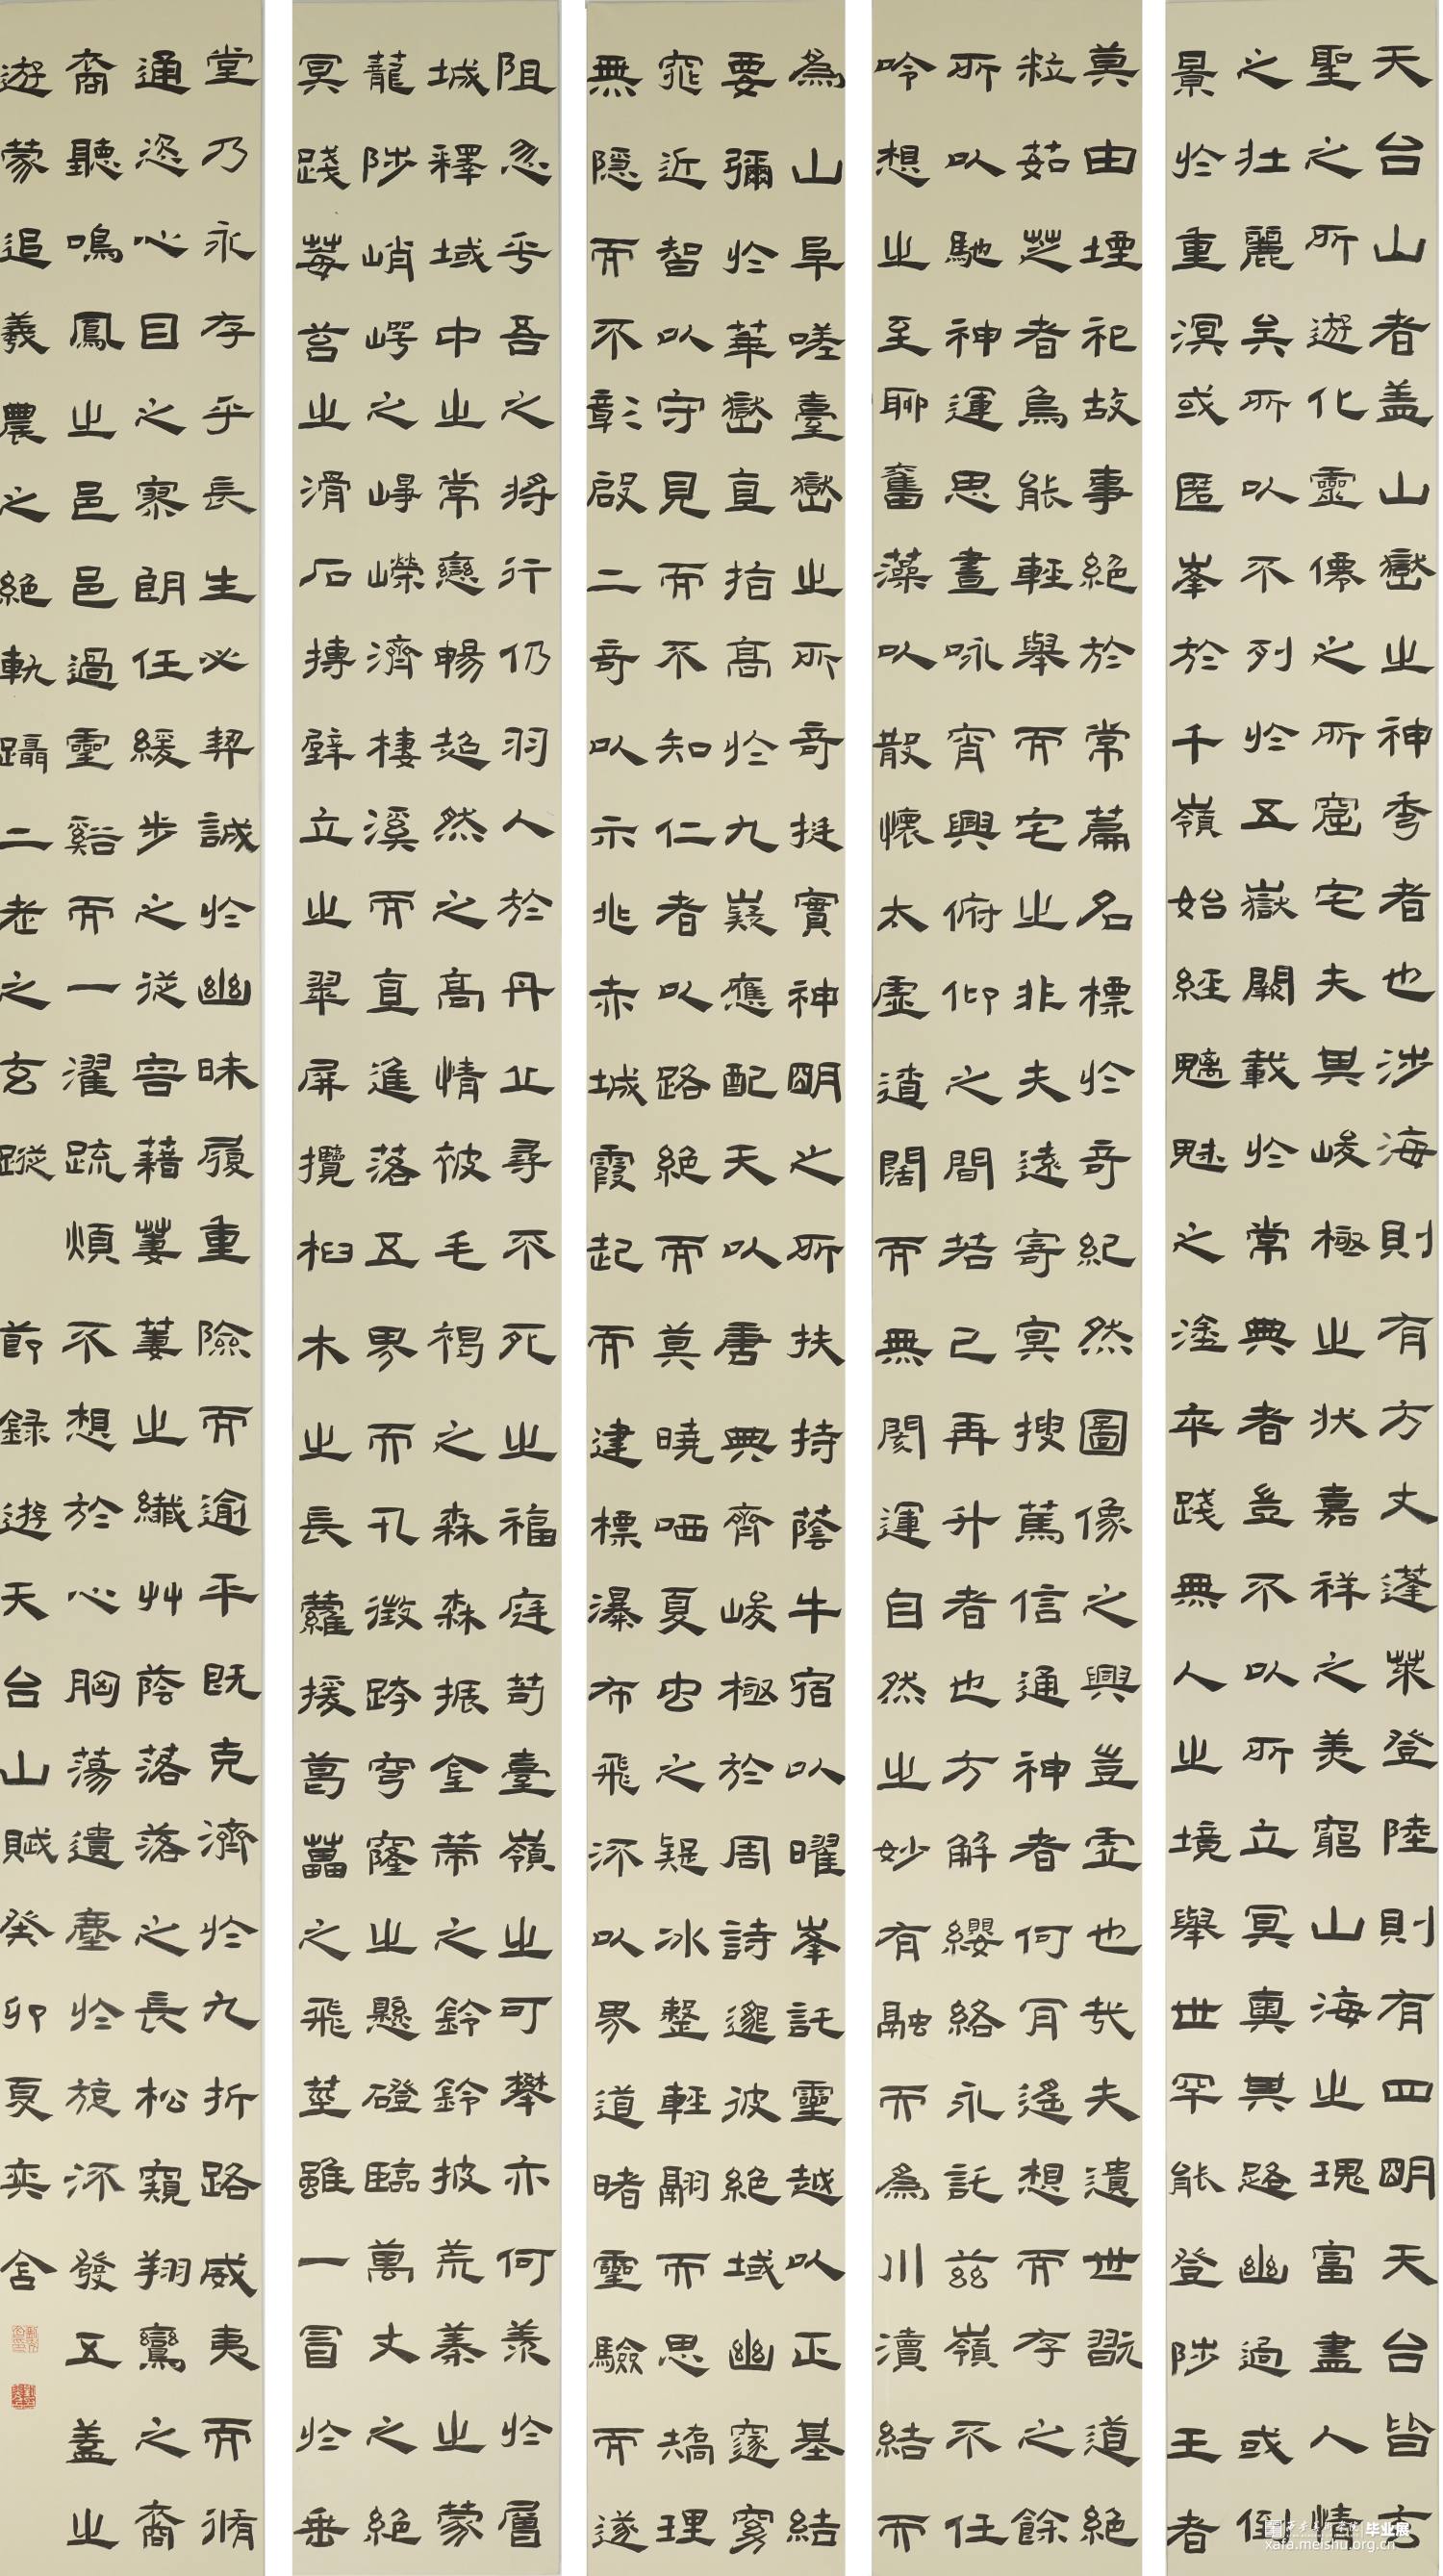 天台山者盖山嶽之神秀者也涉海則有方丈蓬萊登陸則有四明天台皆玄
聖之所遊化靈僊之所窟宅夫其峻極之狀嘉祥之美窮山海之瑰富盡人情
之壯麗矣所以不列於五嶽闕載於常典者豈不以所立冥奥其路幽迥或倒
景於重溟或匿峯於千嶺始經魑魅之塗卒踐無人之境舉世罕能登陟王者
莫由堙祀故事絕於常篇名標於奇紀然圖像之興豈虛也哉夫遺世翫道絕
粒茹芝者烏能輕舉而宅之非夫遠寄冥搜篤信通神者何肯遙想而存之餘
所以馳神運思晝咏宵興俯仰之間若已再升者也方解纓絡永託茲嶺不任
吟想之至聊奮藻以散懷太虛遼闊而無閡運自然之妙有融而為川瀆結而
為山阜嗟臺嶽之所奇挺實神明之所扶持蔭牛宿以曜峯託靈越以正基結
要彌於華嶽直指高於九嶷應配天以唐典齊峻極於周詩邈彼絕域幽邃窈
窕近智以守見而不知仁者以路絕而莫曉哂夏虫之疑冰整輕翮而思矯理
無隱而不彰啟二奇以示兆赤城霞起而建標瀑布飛流以界道睹靈驗而遂
阻忽乎吾之將行仍羽人於丹丘尋不死之福庭苟臺嶺之可攀亦何羨於層
城釋域中之常戀暢超然之高情被毛褐之森森振金策之鈴鈴披荒蓁之蒙
龍陟峭崿之崢嶸濟棲溪而直進落五界而卂徵跨穹窿之懸磴臨萬丈之絕
冥踐莓苔之滑石摶壁立之翠屏攬樛木之長蘿援葛藟之飛莖雖一冒於垂
堂乃永存乎長生必契誠於幽昧履重險而逾平既克濟於九折路威夷而脩
通恣心目之寥朗任緩步之從容藉萋萋之纖艸蔭落落之長松窺翔鸞之裔
裔聽鳴鳳之邕邕過靈谿而一濯疏煩不想於心胸蕩遺塵於旋流發五蓋之
遊蒙追羲農之絕軌躡二老之玄蹤 節錄遊天台山賦癸卯夏奕
西安美术学院 毕业展
xafa.meishu.org.cn